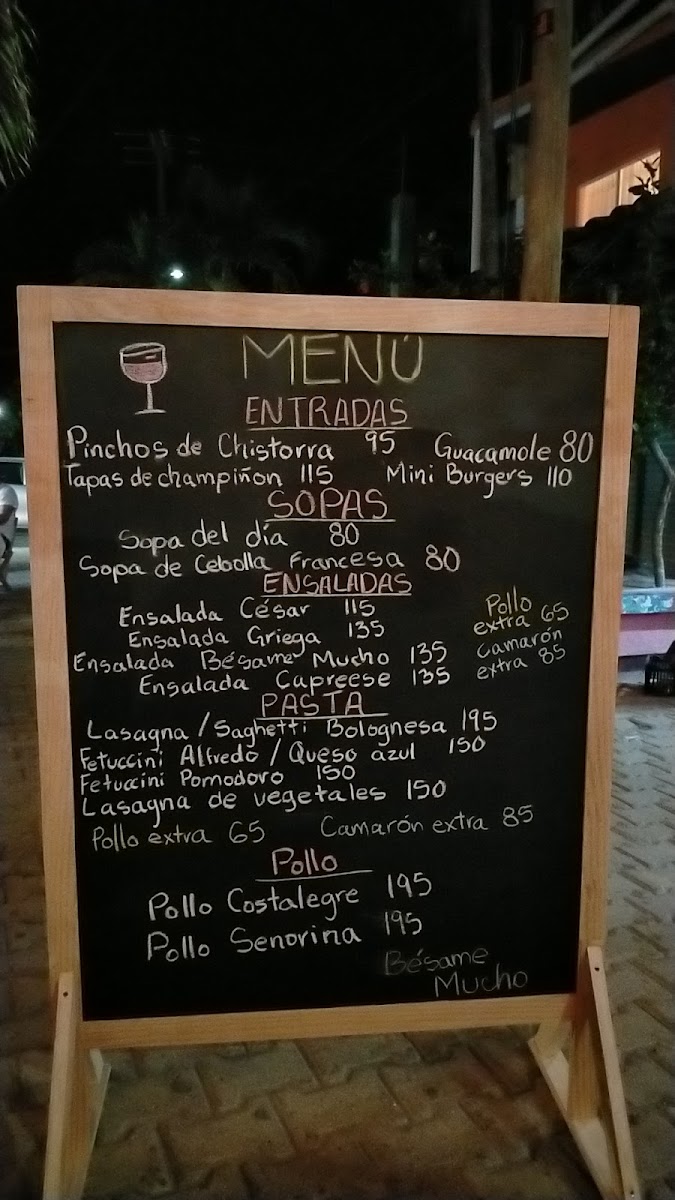 MENÚ
ENTRADAS
Pinchos de Chistorra 95 Guacamole 80
Tapas de champiñon 115 Mini Burgers 110
SOPAS
Sopa del día 80
Sopa de Cebolla Francesa 80
ENSALADAS
Ensalada César 115
Ensalada Griega 135
Ensalada Bésame Mucho 135
Ensalada Capreese 135
Pollo
extra 65
Camarón
extra 85
PASTA
Lasagna / Saghetti Bolognesa 195
Fetuccini Alfredo / Queso azul 150
Fetuccini Pomodoro 150
Lasagna de vegetales 150
Pollo extra 65 Camarón extra 85
Pollo
Pollo Costalegre 195
Pollo Senorina 195
Bésame
Mucho